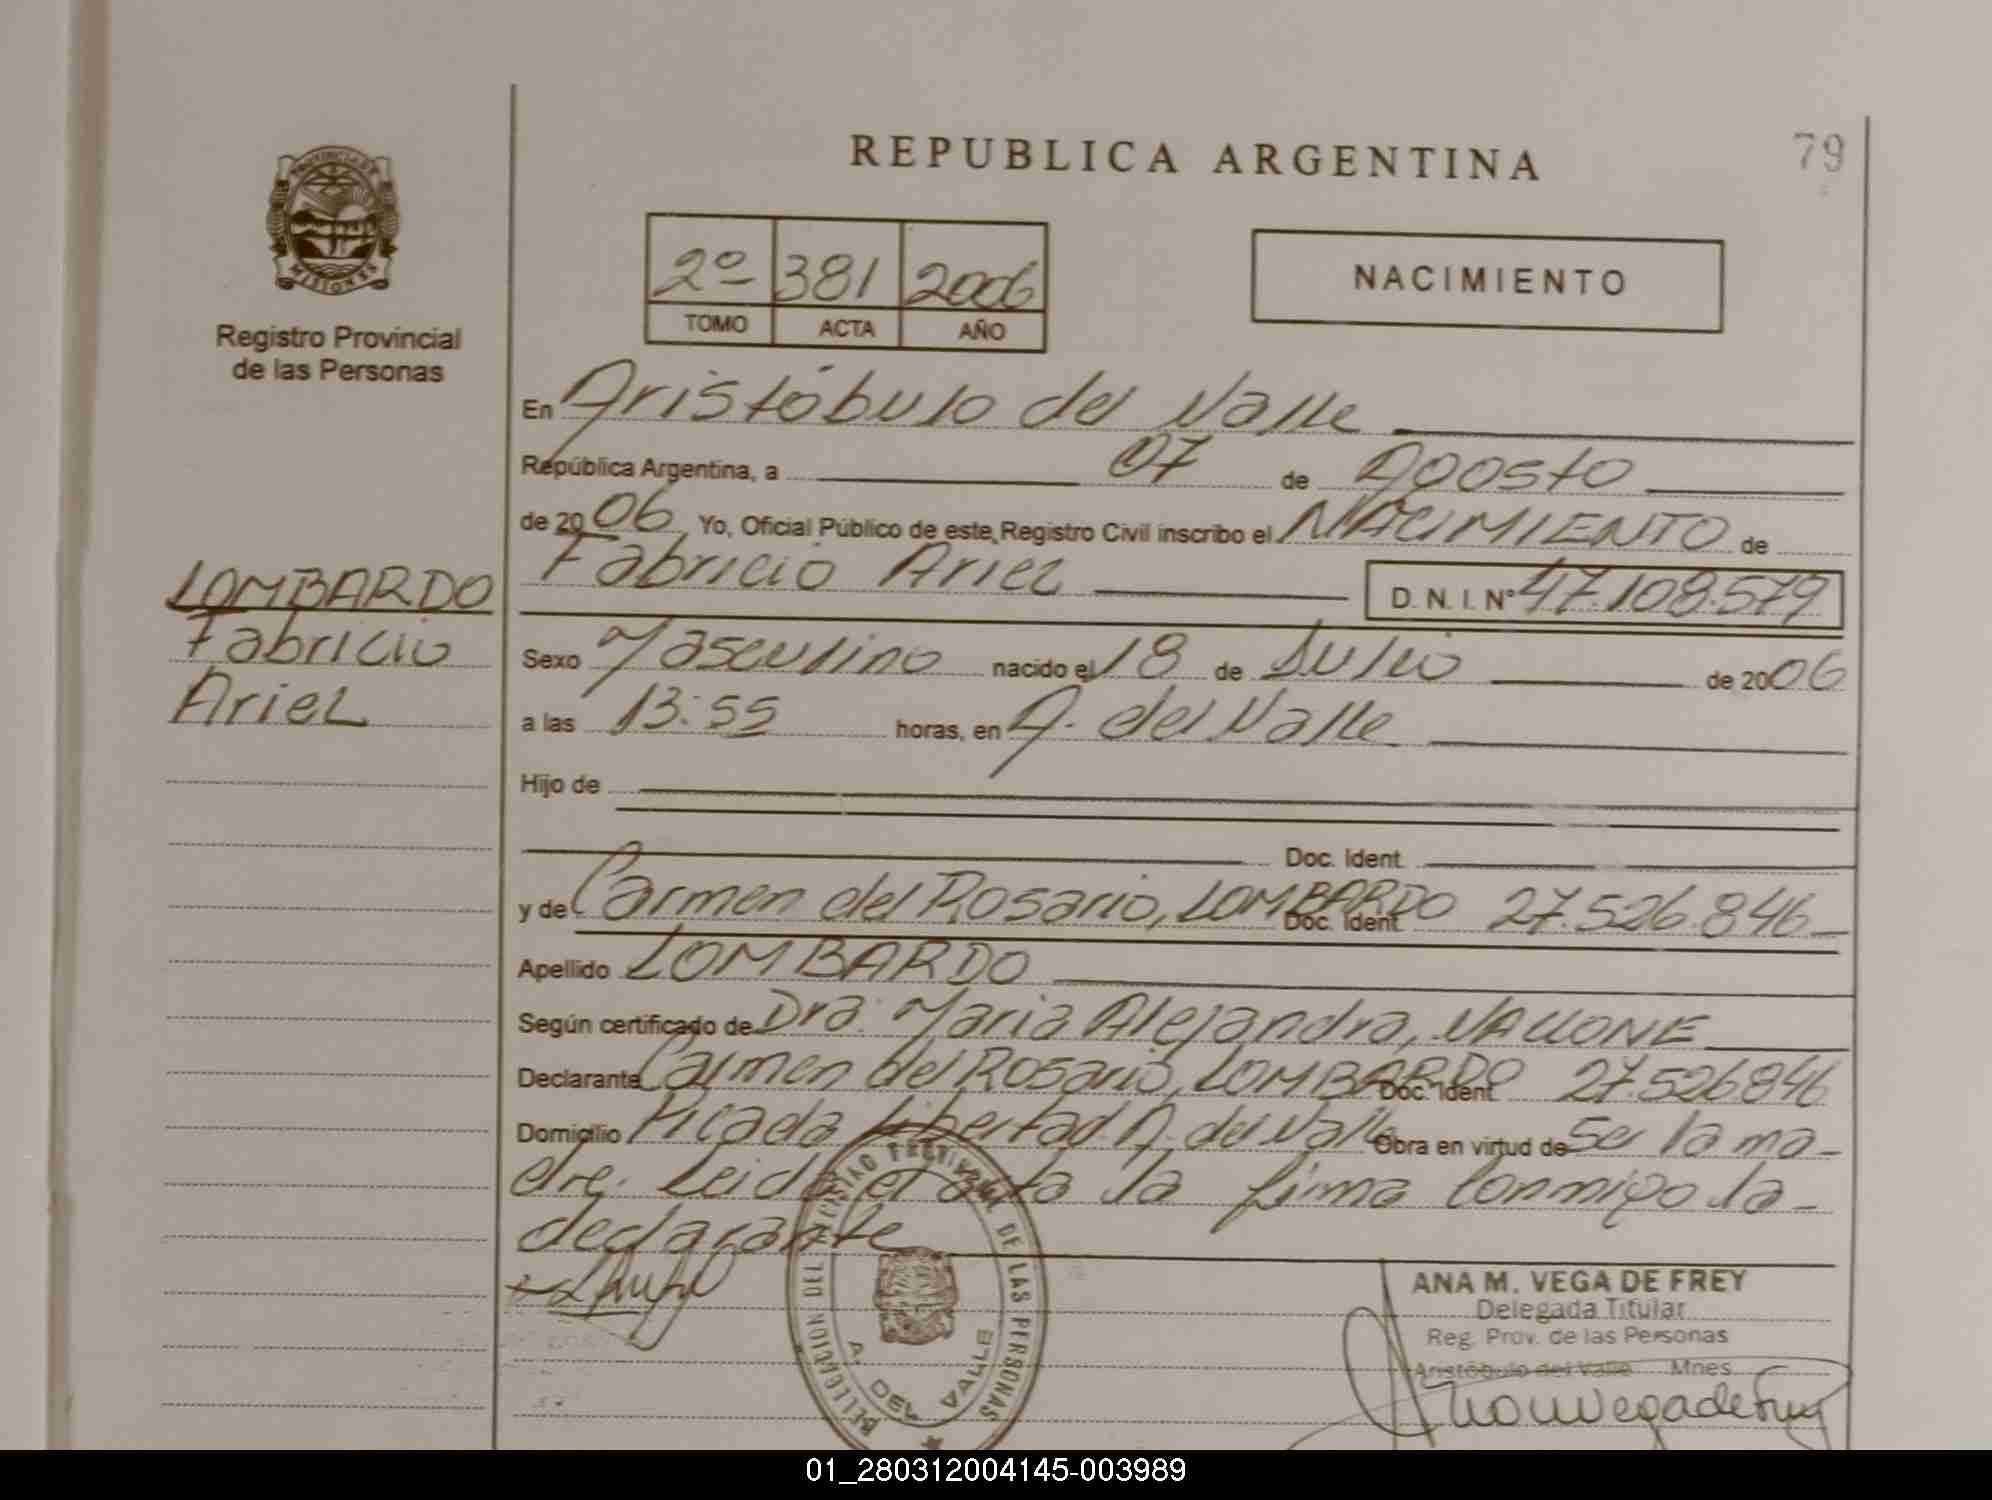 79
REPUBLICA ARGENTINA
PROVINCIA DE
MISIONES
Registro Provincial
de las Personas
2º 381 2006
TOMO ACTA AÑO
NACIMIENTO
En Aristóbulo del Valle
República Argentina, a 07 de Agosto
de 2006 Yo, Oficial Público de este Registro Civil inscribo el NACIMIENTO de
Fabricio Ariel D. N. I. Nº 47.108.579
LOMBARDO
Fabricio
Ariel
Sexo Masculino nacido el 18 de Julio de 2006
a las 13:55 horas, en A. del Valle
Hijo de
Doc. Ident.
y de Carmen del Rosario, LOMBARDO Doc. Ident. 27.526.846
Apellido LOMBARDO
Según certificado de Dra. Maria Alejandra, VALLONE
Declarante Carmen del Rosario, LOMBARDO Doc. Ident. 27.526846
Domicilio Picada Libertad. A. del Valle Obra en virtud de Ser la ma-
dre. Leida el acta la firma conmigo la
declarante
DELEGACION DEL REGISTRO PROVINCIAL DE LAS PERSONAS
A. DEL VALLE
ANA M. VEGA DE FREY
Delegada Titular
Reg. Prov. de las Personas
Aristóbulo del Valle Mnes
01_280312004145-003989